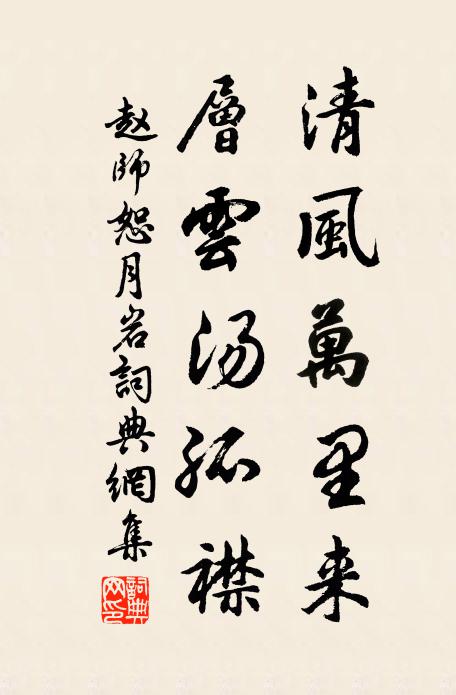 清風萬里来
層雲汤孤襟
赵師恕月岩詞典網集
詞典網印